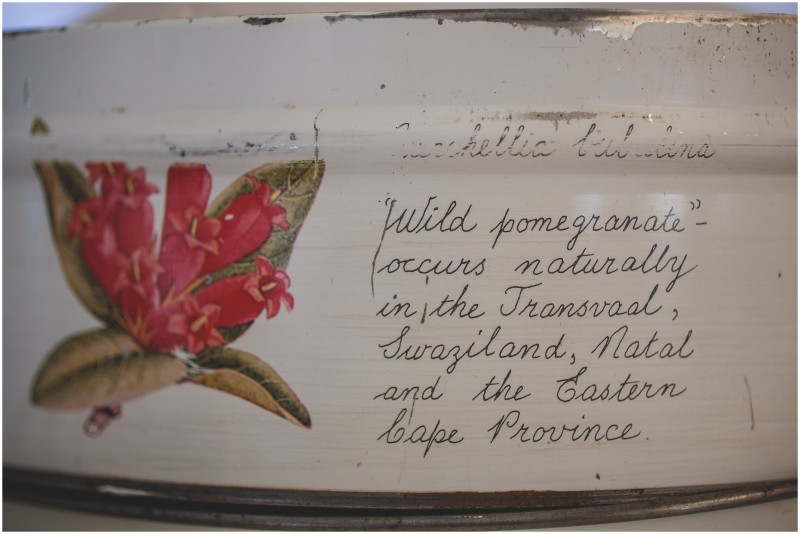 "Wild pomegranate"-
occurs naturally
in the Transvaal,
Swaziland, Natal
and the Eastern
Cape Province.